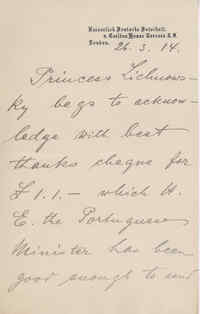 Kaiserlich Deutsche Botschaft.
9, Carlton House Terrace S.W.
London.
26. 3. 14.
Princess Lichnows-
ky begs to acknow-
ledge with best
thanks cheque for
£ 1.1.— which H.
E. the Portuguese
Minister has been
good enough to send